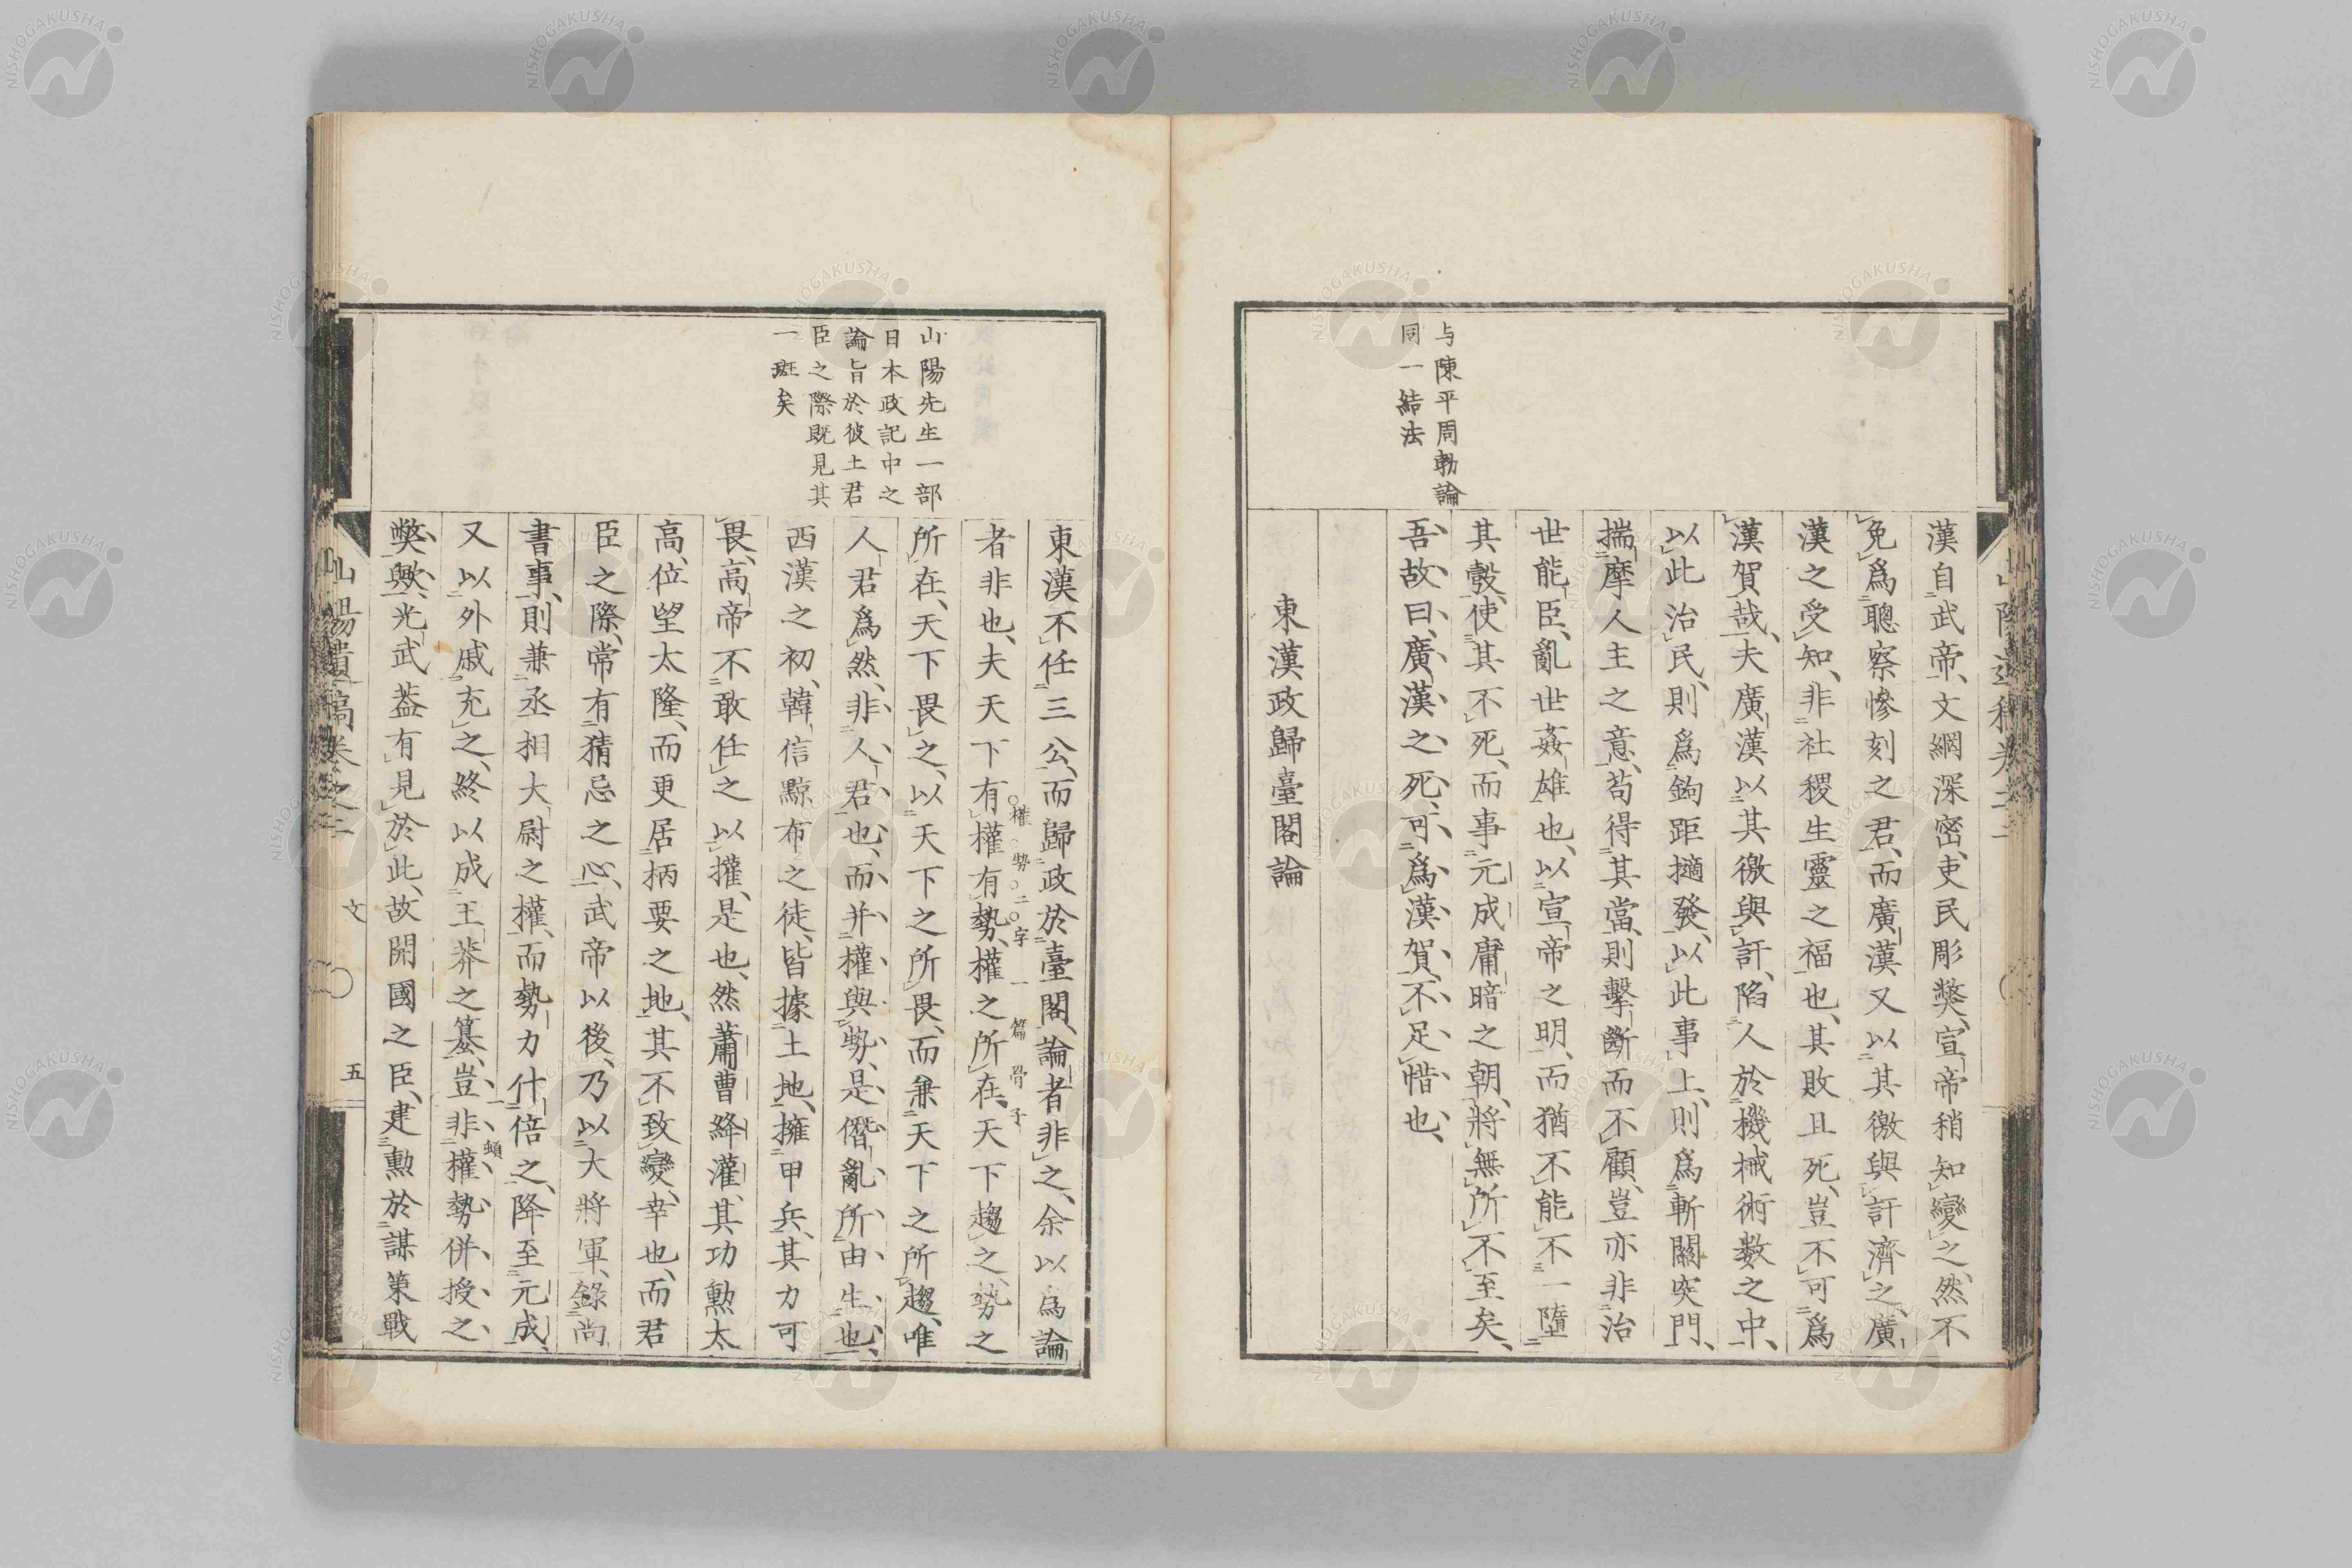 漢自武帝、文網深密、吏民彫獘、宣帝稍知變之、然不
免爲聰察慘刻之君、而廣漢又以其徼與訐濟之、廣
漢之受知、非社稷生靈之福也、其敗且死、豈不可爲
漢賀哉、夫廣漢以其徼與訐、陷人於機械術數之中、
以此治民、則爲鉤距擿發、以此事上、則爲斬關突門、
揣摩人主之意、苟得其當、則擊斷而不顧、豈亦非治
世能臣、亂世姦雄也、以宣帝之明、而猶不能不一墮
其彀、使其不死、而事元成庸暗之朝、將無所不至矣、
吾故曰、廣漢之死、可爲漢賀、不足惜也、
与陳平周勃論
同一結法
東漢政歸臺閣論
東漢不任三公、而歸政於臺閣、論者非之、余以爲論
者非也、夫天下有權有勢、權之所在、天下趨之、勢之
所在、天下畏之、以天下之所畏、而兼天下之所趨、唯
人君爲然、非人君也、而并權與勢、是僭亂所由生也、
西漢之初、韓信黥布之徒、皆據土地、擁甲兵、其力可
畏、高帝不敢任之以權、是也、然蕭曹絳灌、其功勲太
高、位望太隆、而更居柄要之地、其不致變、幸也、而君
臣之際、常有猜忌之心、武帝以後、乃以大將軍、錄尚
書事、則兼丞相大尉之權、而勢力什倍之、降至元成、
又以外戚充之、終以成王莽之簒、豈非權勢併授之
獘歟、光武葢有見於此、故開國之臣、建勲於謀策戰
權勢二字一篇骨子
一頓
山陽先生一部
日本政記中之
論旨於彼土君
臣之際既見其
一斑矣
山陽遺稿卷之二
文
五